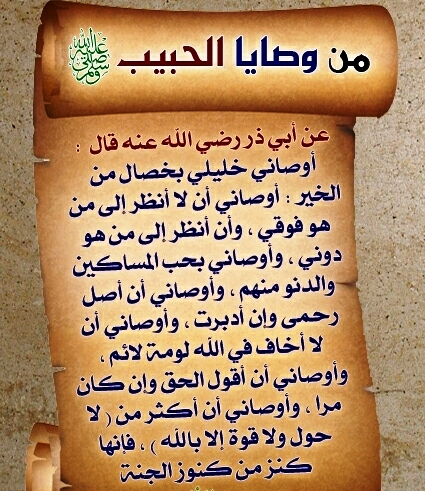 من وصايا الحبيب ﷺ
عن أبي ذر رضي الله عنه قال :
أوصاني خليلي بخصال من
الخير : أوصاني أن لا أنظر إلى من
هو فوقي ، وأن أنظر إلى من هو
دوني ، وأوصاني بحب المساكين
والدنو منهم ، وأوصاني أن أصل
رحمى وإن أدبرت ، وأوصاني أن
لا أخاف في الله لومة لائم ،
وأوصاني أن أقول الحق وإن كان
مرا ، وأوصاني أن أكثر من ( لا
حول ولا قوة إلا بالله ) ، فإنها
كنز من كنوز الجنة